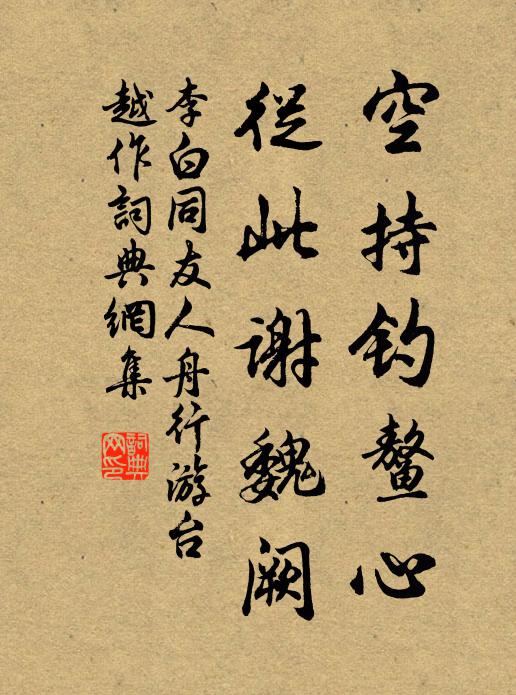 空持钓鳌心
從此謝魏阙
李白同友人舟行游台
越作詞典網集
詞典网印